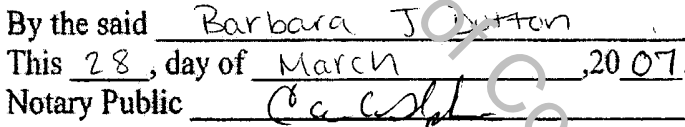 By the said Barbara J Dutton
This 28, day of March, 20 07
Notary Public